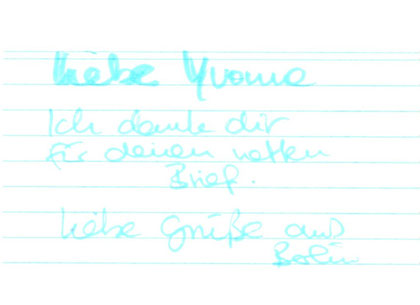 Liebe Yvonne
Ich danke dir
für deinen netten
Brief.
Liebe Grüße aus
Berlin